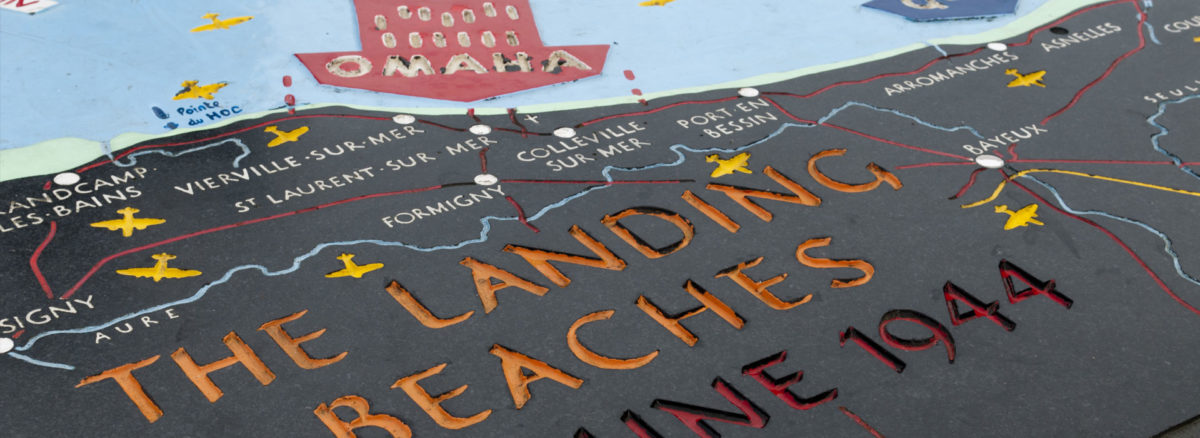 OMAHA
Pointe
du HOC
ASNELLES
ARROMANCHES
PORT·EN
BESSIN
BAYEUX
COLLEVILLE
SUR MER
VIERVILLE·SUR·MER
ST LAURENT·SUR MER
FORMIGNY
LES·BAINS
AURE
THE LANDING
BEACHES
1944